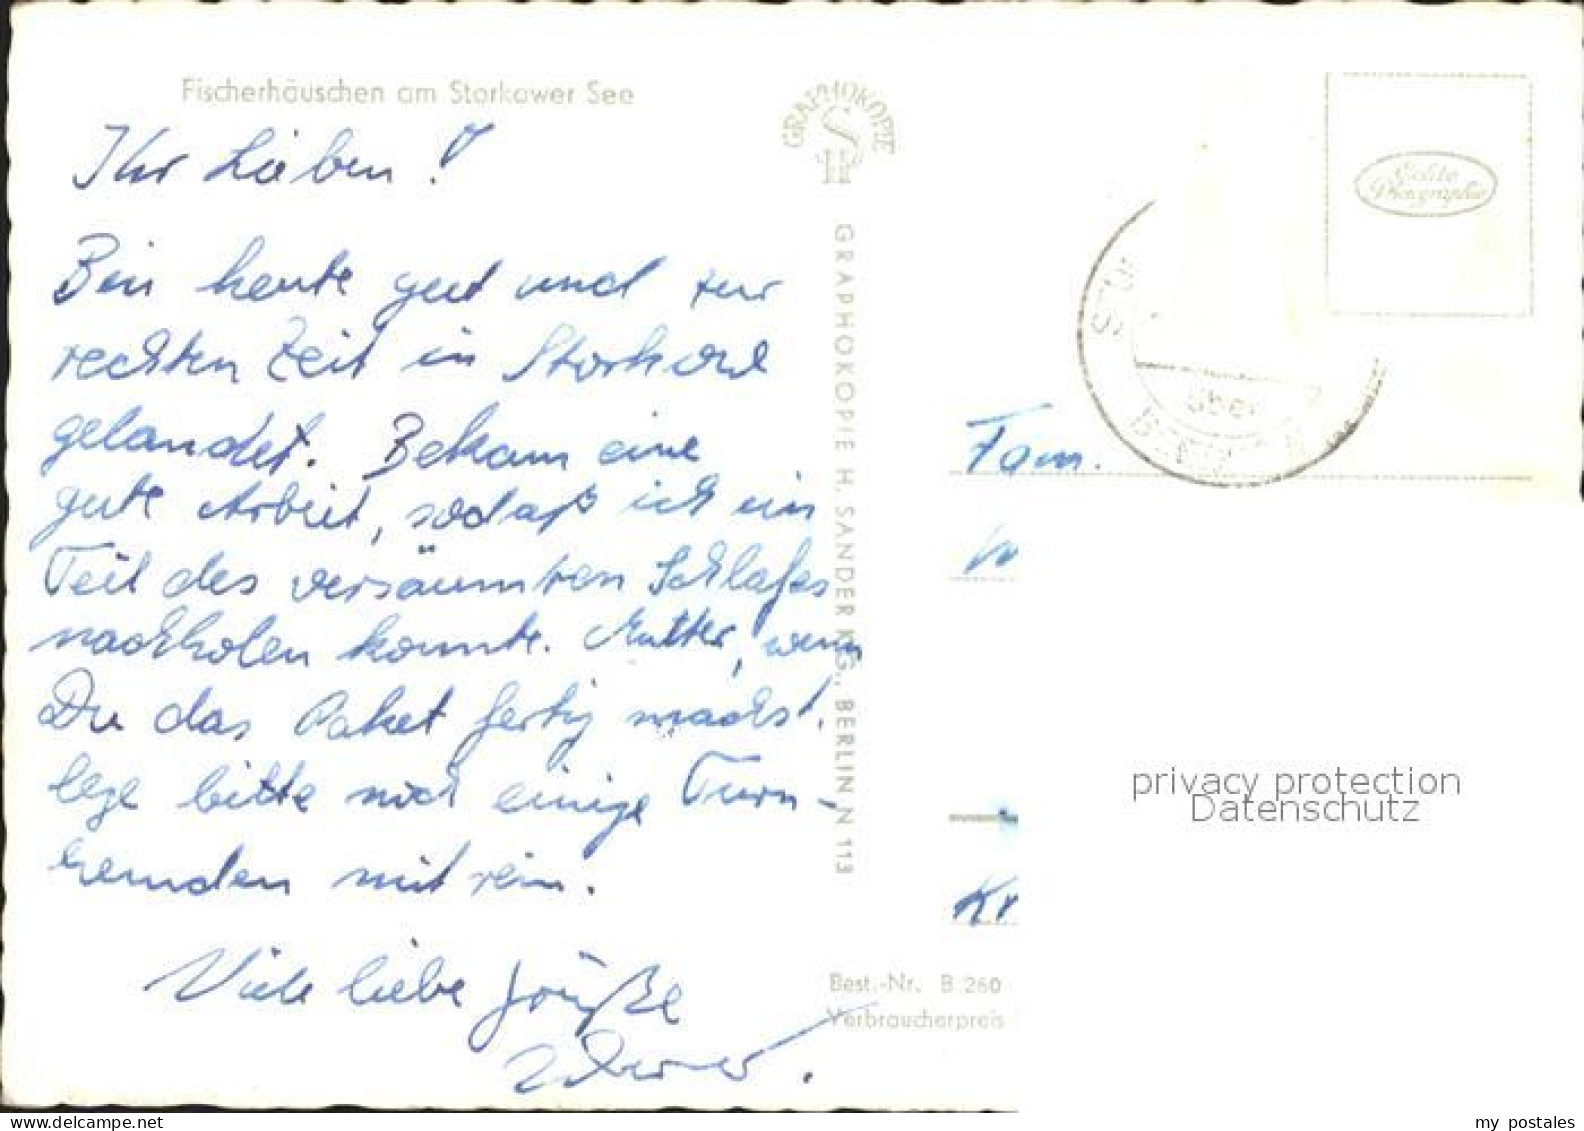 Fischerhäuschen am Storkower See
Ihr Lieben!
Bin heute gut und zur
rechten Zeit in Storkow
gelandet. Bekam eine
gute Arbeit, sodaß ich ein
Teil des versäumten Schlafes
nachholen konnte. Mutter, wenn
Du das Paket fertig machst,
lege bitte noch einige Turn-
hemden mit rein.
Viele liebe Grüße
GRAPHOKOPIE
HS
GRAPHOKOPIE H. SANDER KG., BERLIN N 113
Echte
Photographie
über
Fam.
in
Kr
privacy protection
Datenschutz
Best.-Nr. B 260
Verbraucherpreis
my postales